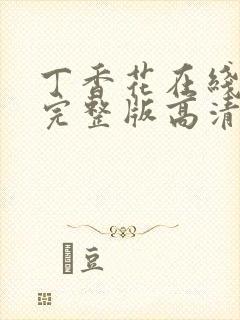 丁香花在线
完整版高清
豆